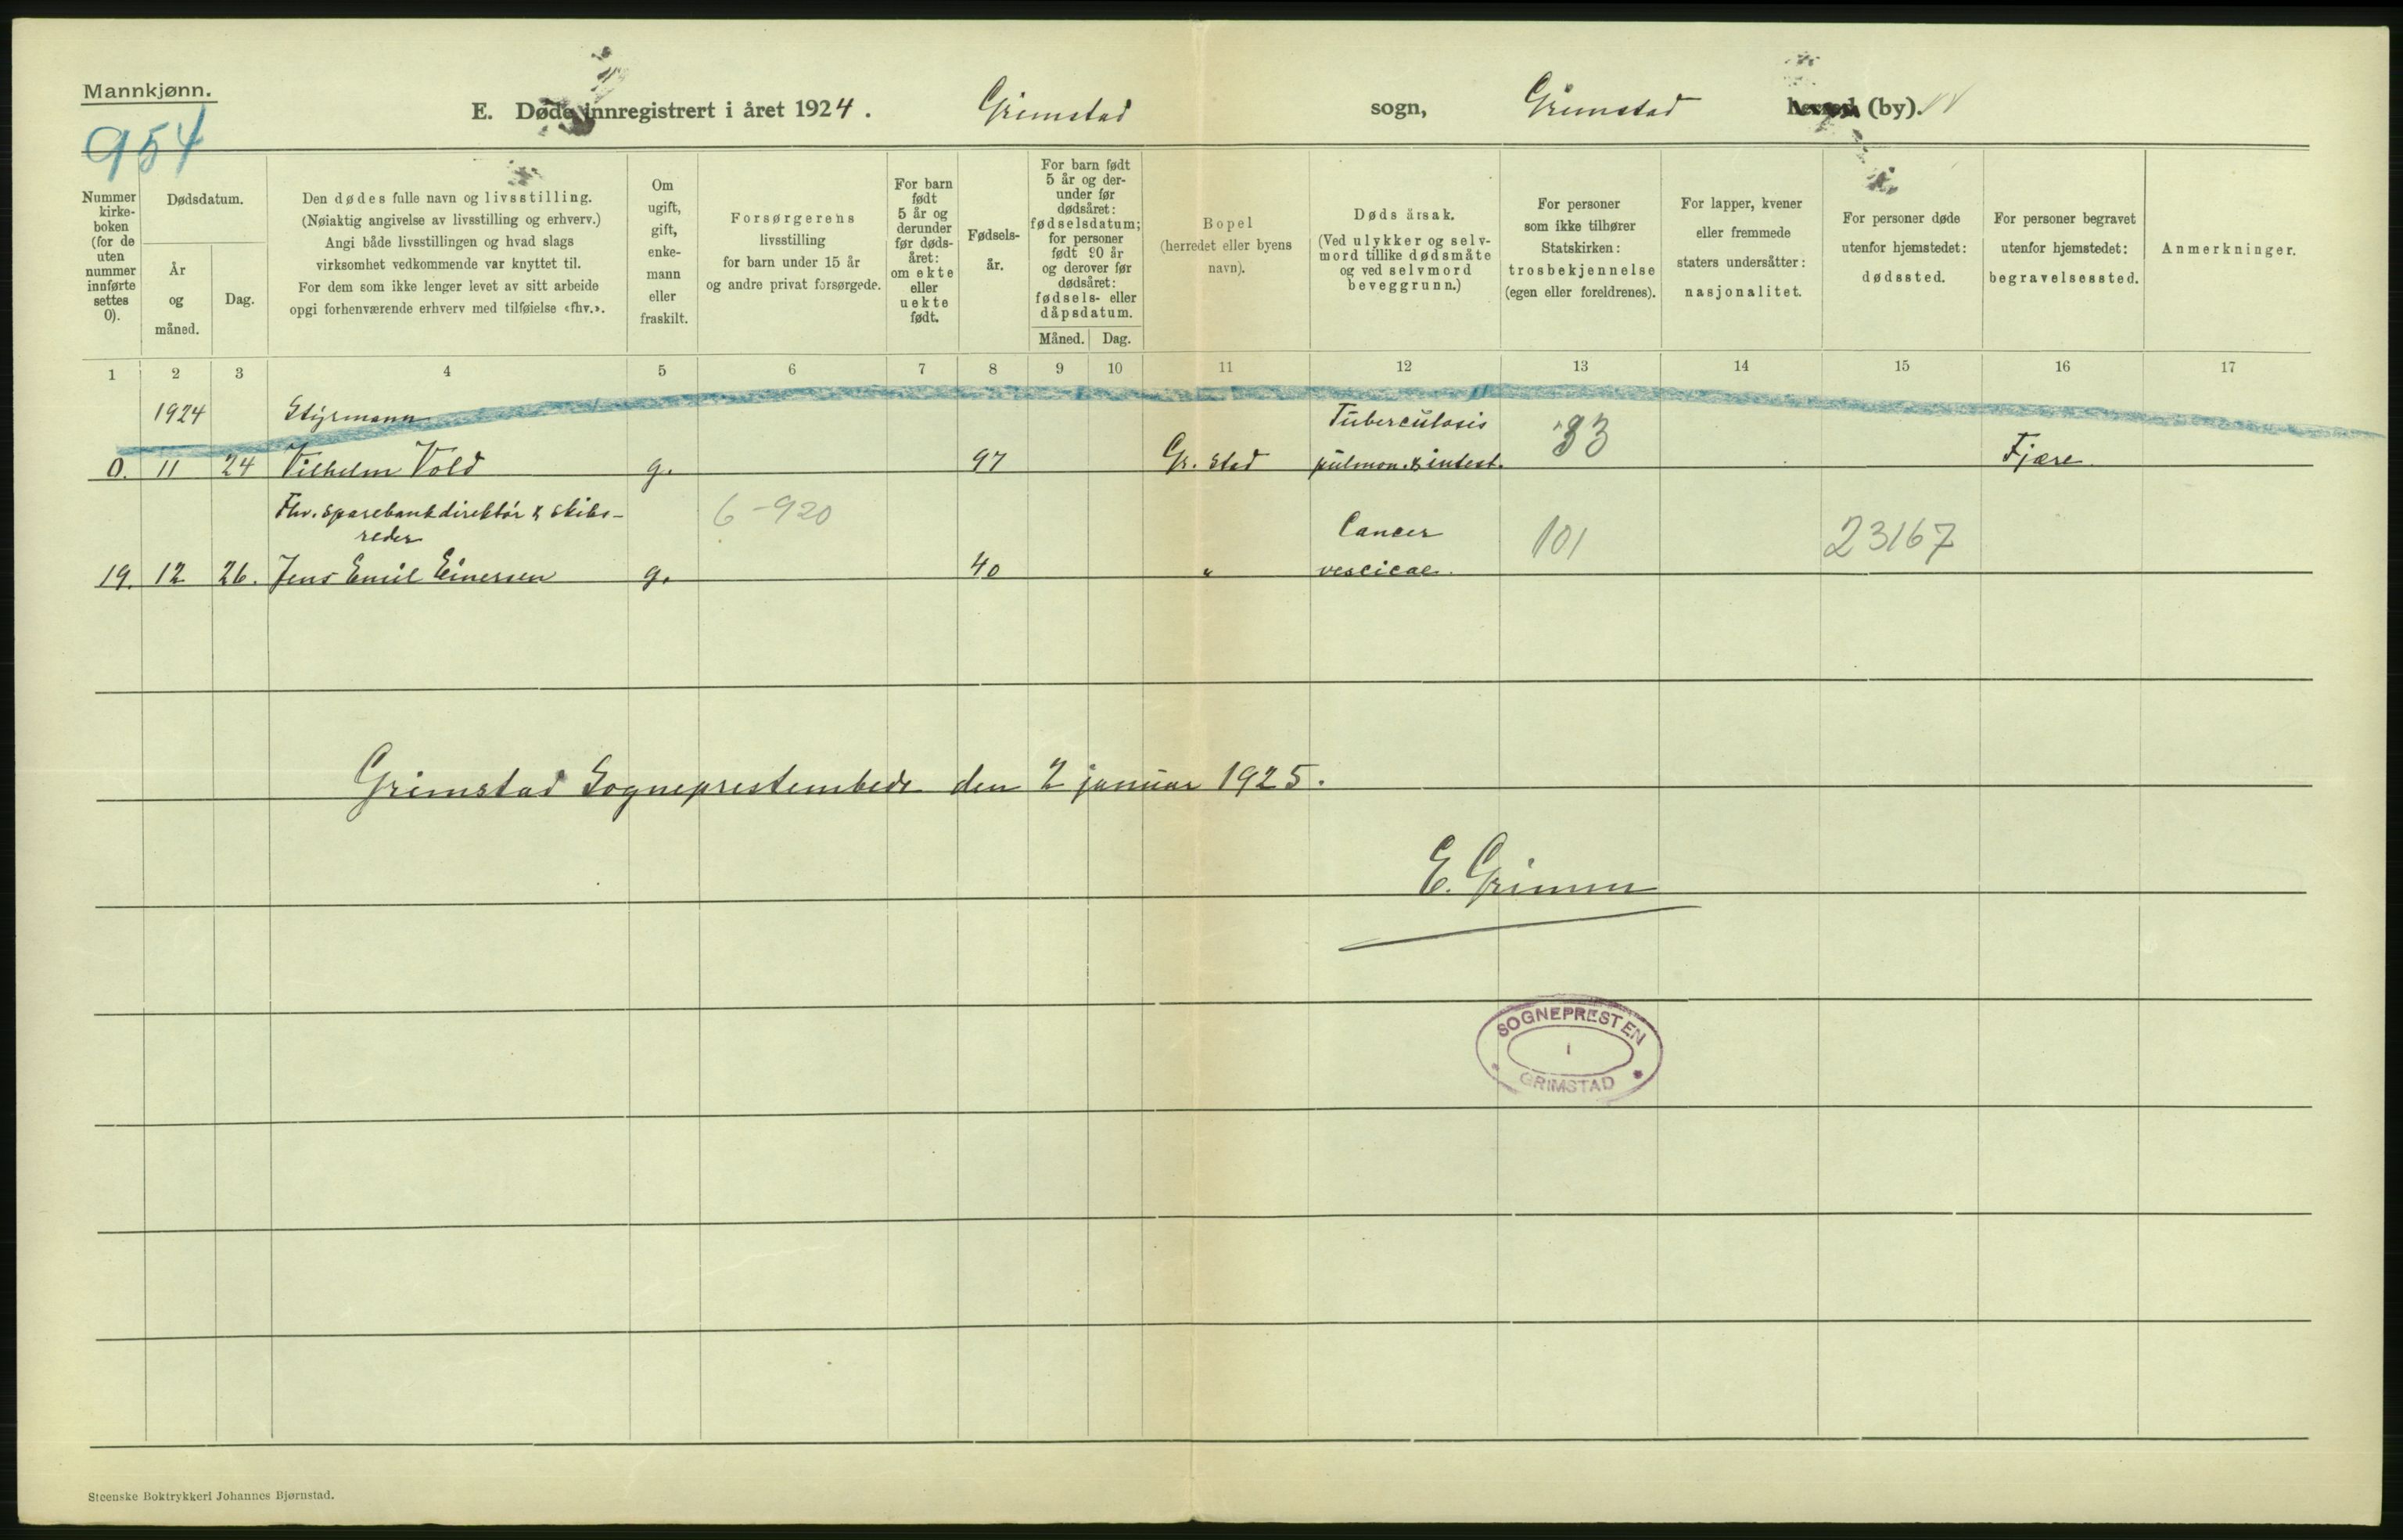 Mannkjønn.
954
E. Døde innregistrert i året 1924. Grimstad sogn, Grimstad herred (by).
Nummer kirke-boken (for de uten nummer innførte settes 0).
Dødsdatum.
År og måned.
Dag.
Den dødes fulle navn og livsstilling.
(Nøiaktig angivelse av livsstilling og erhverv.)
Angi både livsstillingen og hvad slags
virksomhet vedkommende var knyttet til.
For dem som ikke lenger levet av sitt arbeide
opgi forhenværende erhverv med tilføielse «fhv.».
Om ugift, gift, enke-mann eller fraskilt.
Forsørgerens
livsstilling
for barn under 15 år
og andre privat forsørgede.
For barn født 5 år og derunder før døds-året: om ekte eller uekte født.
Fødsels-år.
For barn født
5 år og der-
under før
dødsåret:
fødselsdatum;
for personer
født 90 år
og derover før
dødsåret:
fødsels- eller
dåpsdatum.
Måned. Dag.
Bopel
(herredet eller byens
navn).
Dødsårsak.
(Ved ulykker og selv-
mord tillike dødsmåte
og ved selvmord
beveggrunn.)
For personer
som ikke tilhører
Statskirken:
trosbekjennelse
(egen eller foreldrenes).
For lapper, kvener
eller fremmede
staters undersåtter:
nasjonalitet.
For personer døde
utenfor hjemstedet:
dødssted.
For personer begravet
utenfor hjemstedet:
begravelsessted.
Anmerkninger.
1 2 3 4 5 6 7 8 9 10 11 12 13 14 15 16 17
1924 Styrmann Tuberculosis 33
0. 11 24 Vilhelm Vold g. 97 Gr. stad pulmon. & intest. Fjære
Fhv. sparebankdirektør & skibs- 6-920
reder Cancer 101 23167
19. 12 26. Jens Emil Einersen g. 40 " vescicae.
Grimstad Sogneprestembede den 2 januar 1925.
E. Grimm
SOGNEPRESTEN
I
GRIMSTAD
Steenske Boktrykkeri Johannes Bjørnstad.